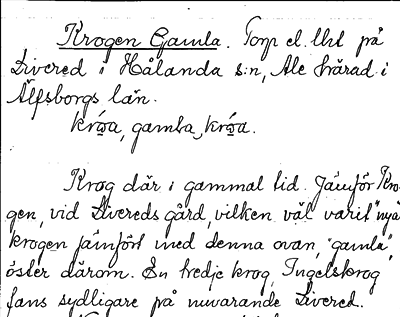 Krogen Gamla. Torp el. Uht på
Livered i Hålanda s:n, Ale härad i
Älfsborgs län.
gamla
Krog där i gammal tid. Jämför Kro-
gen, vid Livereds gård, vilken väl varit "nya
krogen jämfört med denna ovan, "gamla",
öster därom. En tredje krog, Ingelskrog
fans sydligare på nuvarande Livered.